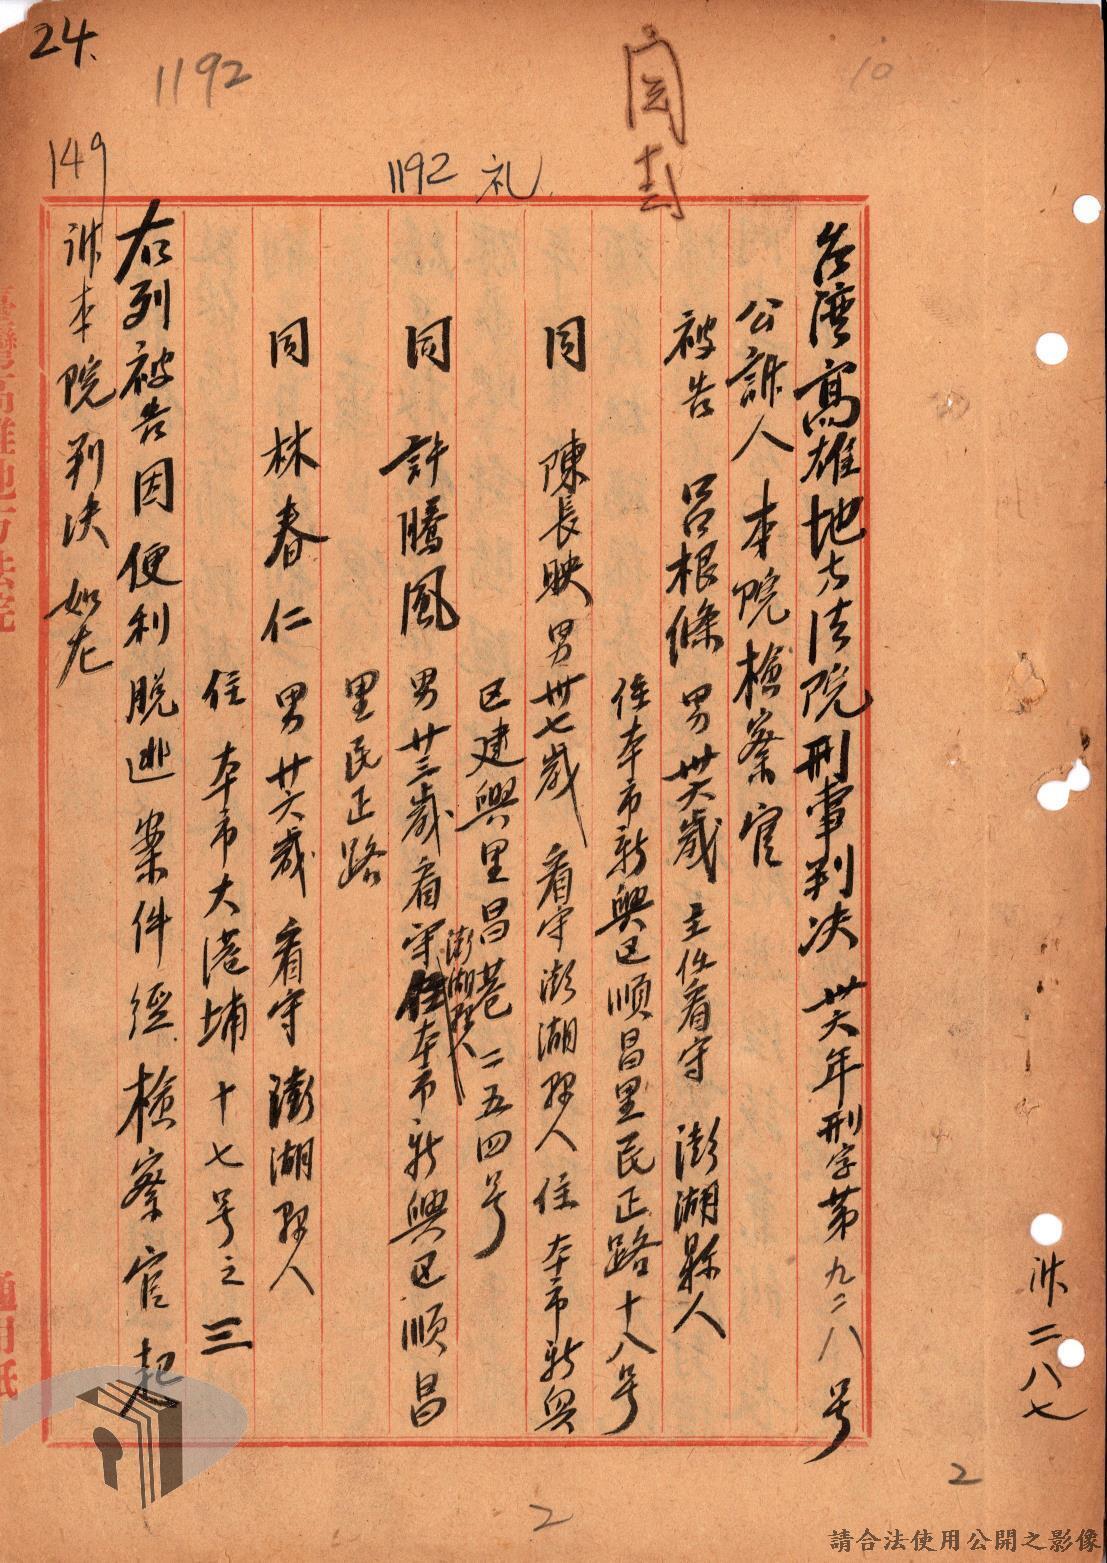 24.
1192
10
149
1192 礼
台湾高雄地方法院刑事判決 卅六年刑字第九二八号
公訴人 本院檢察官
被告 呂根條 男 卅六歲 主任看守 澎湖縣人
住本市新興区順昌里民正路十八号
同 陳長映 男卅七歲 看守 澎湖縣人 住本市新興
区建興里昌巷二五四号
同 許騰風 男廿三歲 看守 澎湖縣人 住本市新興区順昌
里民正路
同 林春仁 男廿六歲 看守 澎湖縣人
住本市大港埔十七号之三
右列被告因便利脱逃案件經檢察官起
訴本院判決如左
臺灣高雄地方法院
通用紙
訴二八七
2
2
請合法使用公開之影像